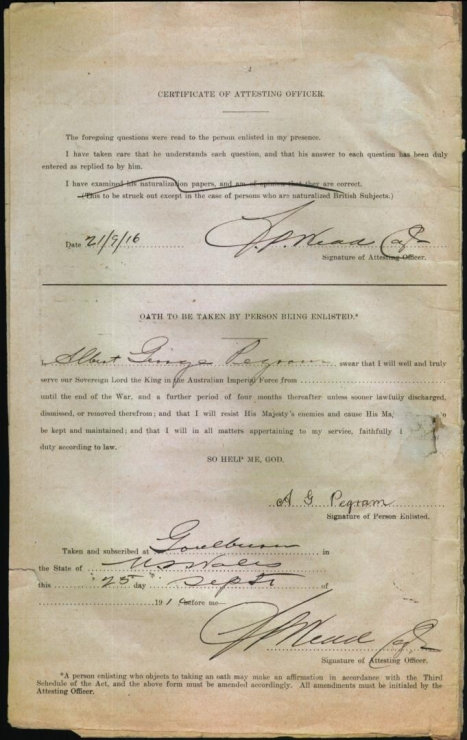 CERTIFICATE OF ATTESTING OFFICER.
The foregoing questions were read to the person enlisted in my presence.
I have taken care that he understands each question, and that his answer to each question has been duly
entered as replied to by him.
I have examined his naturalization papers, and am of opinion that they are correct.
(This to be struck out except in the case of persons who are naturalized British Subjects.)
Date 21/9/16
Signature of Attesting Officer.
OATH TO BE TAKEN BY PERSON BEING ENLISTED.*
I, Albert George Pegram swear that I will well and truly
serve our Sovereign Lord the King in the Australian Imperial Force from
until the end of the War, and a further period of four months thereafter unless sooner lawfully discharged,
dismissed, or removed therefrom; and that I will resist His Majesty's enemies and cause His
be kept and maintained; and that I will in all matters appertaining to my service, faithfully
duty according to law.
SO HELP ME, GOD.
A G Pegram
Signature of Person Enlisted.
Taken and subscribed at Goulburn in
the State of N S Wales
this 25 day Sept of
191 before me—
Signature of Attesting Officer.
*A person enlisting who objects to taking an oath may make an affirmation in accordance with the Third
Schedule of the Act, and the above form must be amended accordingly. All amendments must be initialed by the
Attesting Officer.